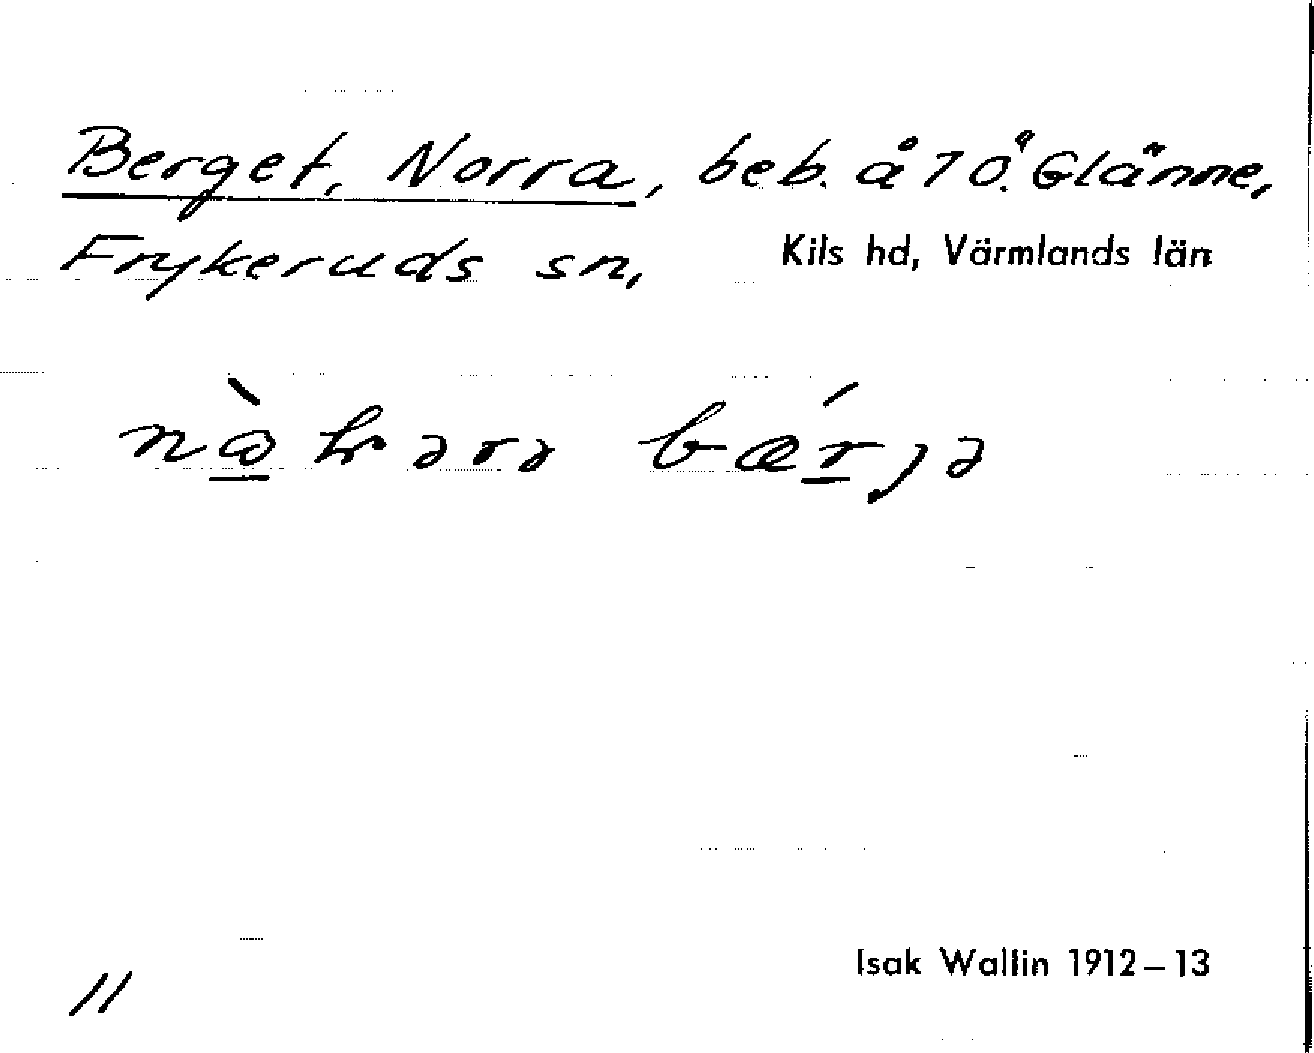 Berget, Norra, beb. å 7 Ö. Glänne,
Frykeruds sn, Kils hd, Värmlands län
Isak Wallin 1912–13
11